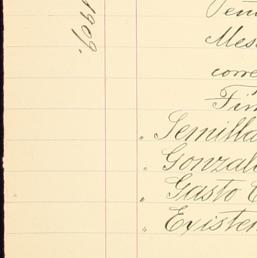 1909.
Mes
corre
Fin
" Semilla
" Gonzal
" Gasto
" Existen